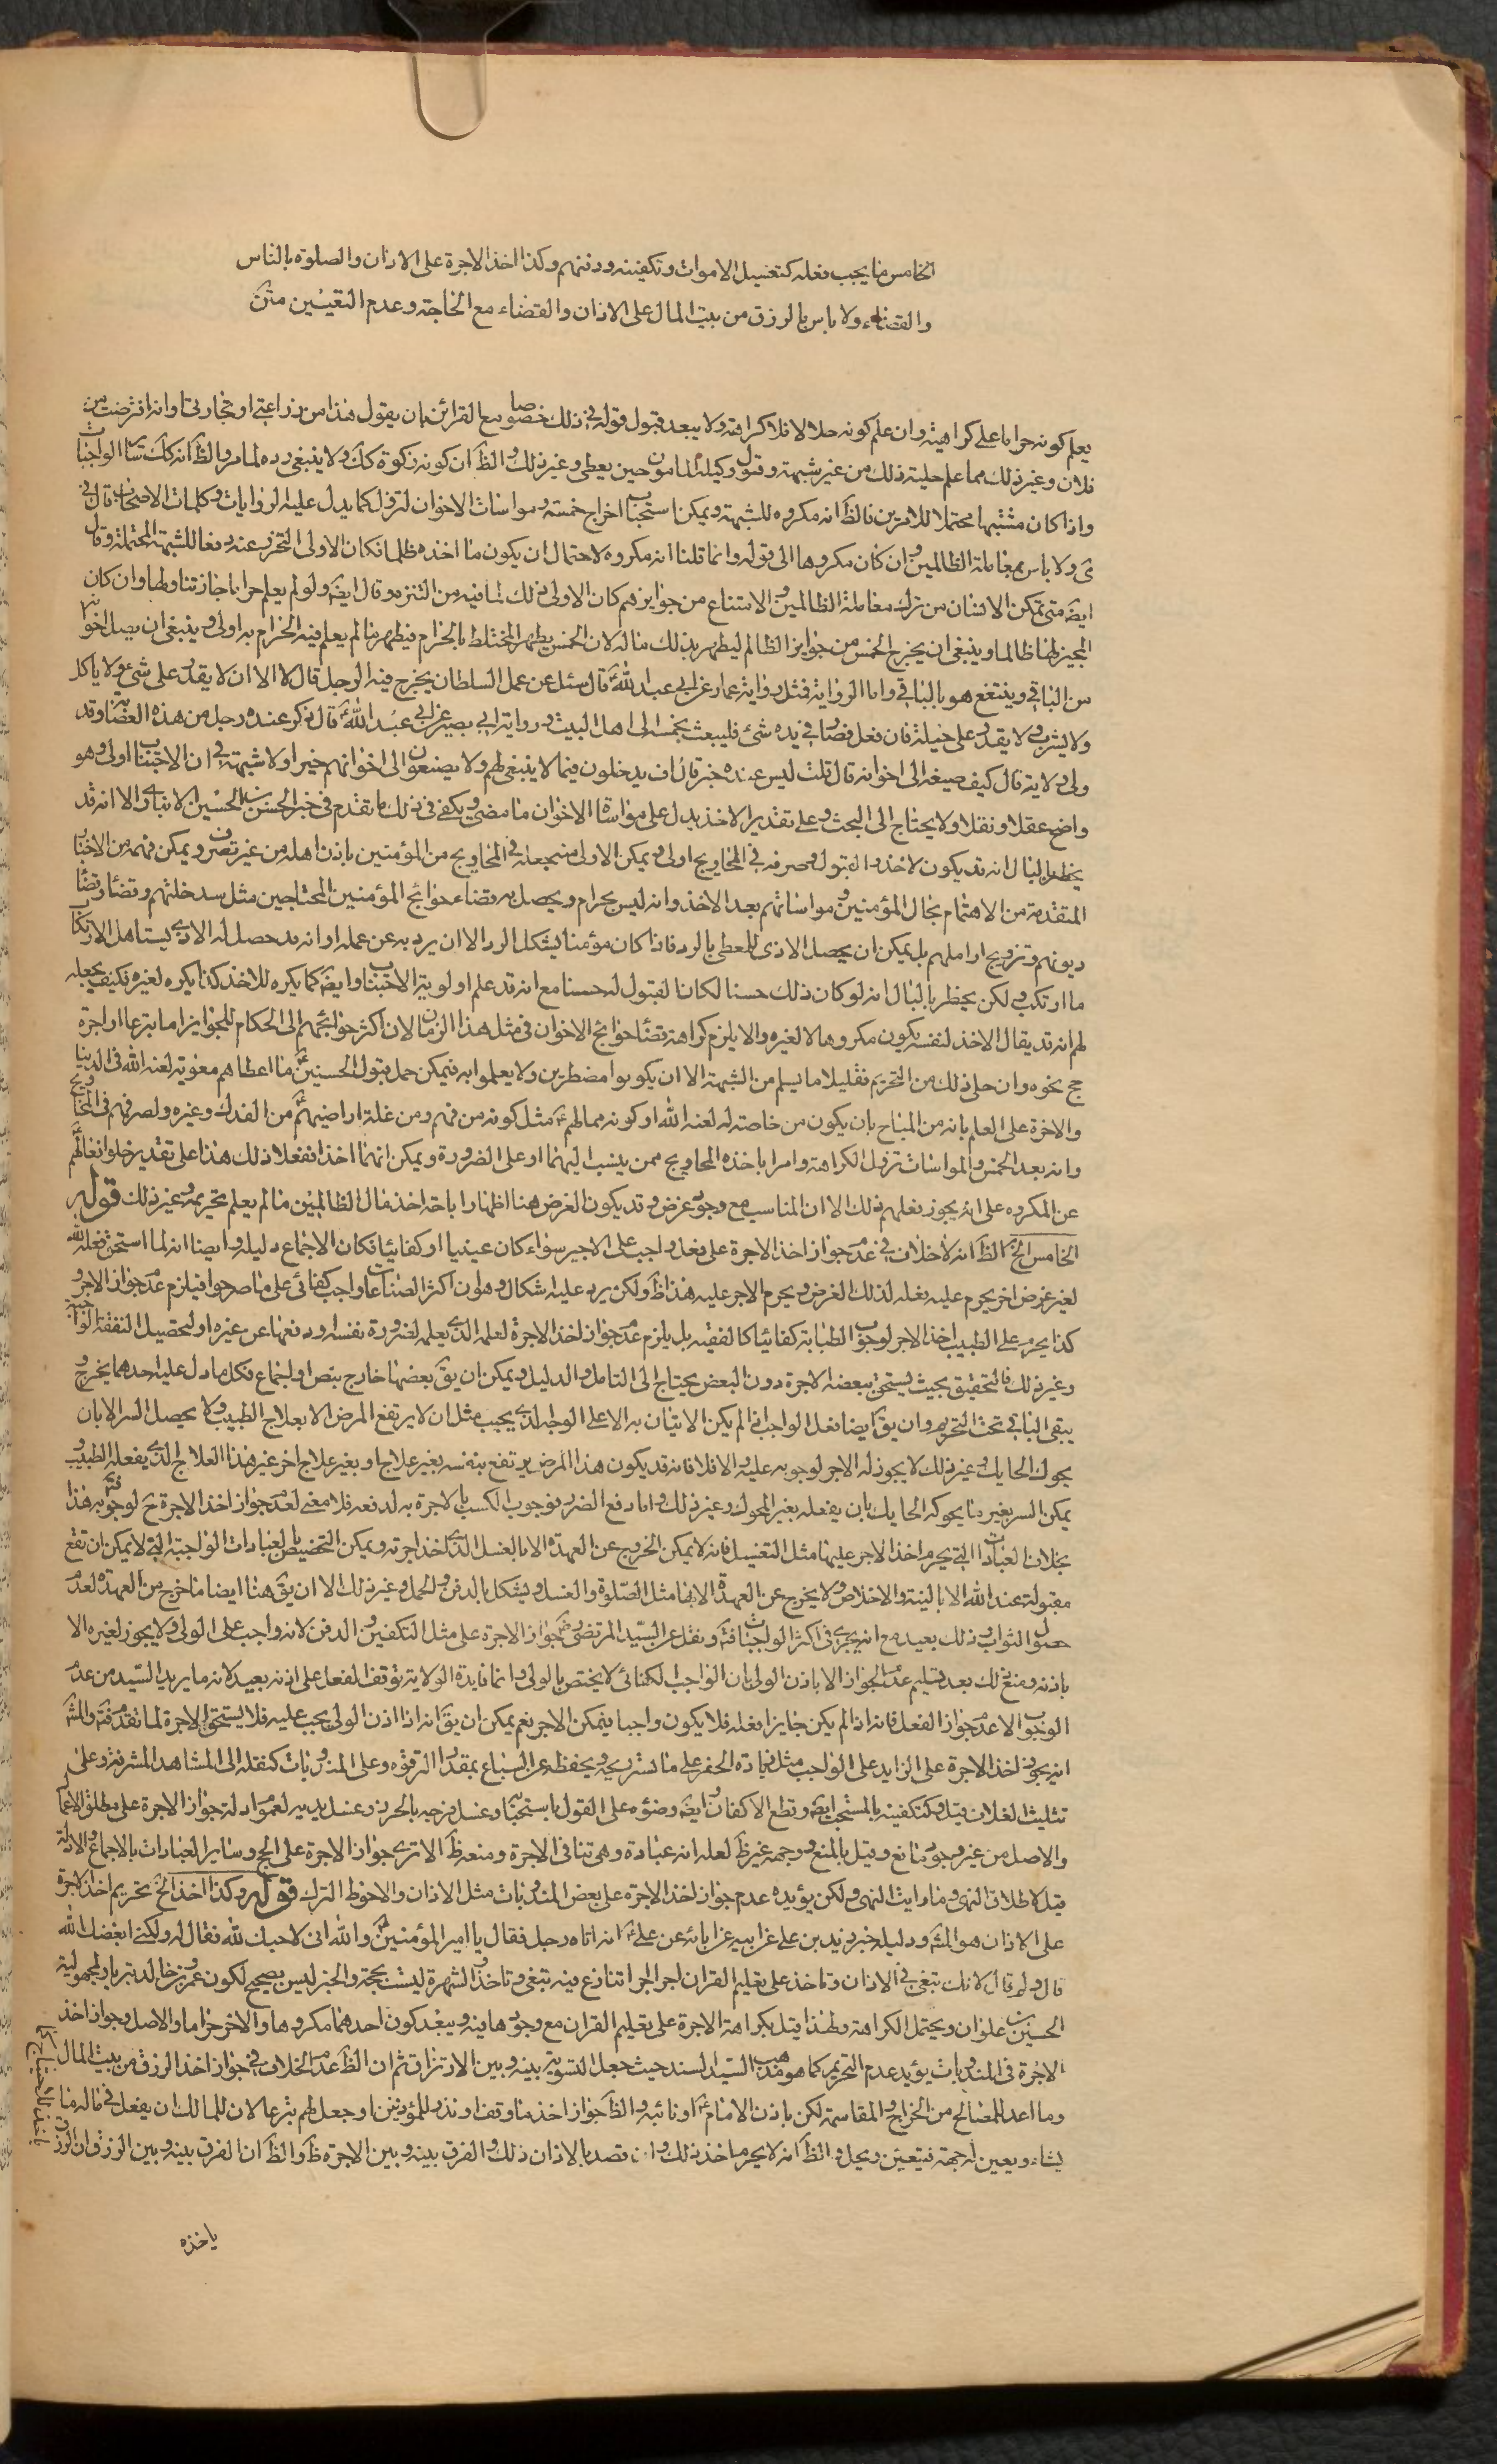 الخامس ما يجب فعله كتغسيل الاموات وتكفينهم ودفنهم وكذا اخذ الاجرة على الاذان والصلوة بالناس
والقضاء ولا باس بالرزق من بيت المال على الاذان والقضاء مع الحاجة وعدم التعيين متن
يعلم كونه حراما على كراهية وان علم كونه حلالا فلا كراهة ولا يبعد قبول قوله في ذلك خصوصا مع القرائن بان يقول هذا من زراعتي او تجارتي او انه اقترضت من
فلان وغير ذلك مما علم حلية ذلك من غير شبهة وقبول وكيله المامون حين يعطى وغير ذلك والظ ان كونه زكوة كك ولا ينبغي رده لما مر والظ انه كك سائر الواجبات
واذا كان مشتبها محتملا للامرين فالظ انه مكروه للشبهة ويمكن استحباب اخراج خمسه ومواسات الاخوان لتزول كما يدل عليه الروايات وكلمات الاصحاب قال في
هى ولا باس بمعاملة الظالمين وان كان مكروها الى قوله وانما قلنا انه مكروه لاحتمال ان يكون ما اخذه ظلما فكان الاولى التحرز عنه دفعا للشبهة المحتملة وقال
ايضه متى تمكن الانسان من ترك معاملة الظالمين والامتناع من جوايزهم كان الاولى ذلك لما فيه من التنزه وقال ايضه ولو لم يعلم حراما جاز تناولها وان كان
المجيز لها ظالما وينبغي ان يخرج الخمس من جوايز الظالم ليطهر بذلك ماله لان الخمس يطهر المختلط بالحرام فيطهر ما لم يعلم فيه الحرام به اولى وينبغي ان يصل اخوانه
من الباقي وينتفع هو بالباقي واما الرواية فمثل رواية عمار عن ابي عبد الله ع قال سئل عن عمل السلطان يخرج فيه الرجل قال لا الا ان لا يقدر على شئ ولا ياكل
ولا يشرب ولا يقدر على حيلة فان فعل فصار في يده شئ فليبعث بخمسه الى اهل البيت ورواية ابي بصير عن ابي عبد الله ع قال ذكر عنده رجل من هذه العصابة وقد
ولى ولاية قال كيف صنيعه الى اخوانه قال قلت ليس عنده خير قال اف يدخلون فيما لا ينبغي لهم ولا يصنعون الى اخوانهم خيرا ولا شبهة في ان الاجتناب اولى وهو
واضح عقلا ونقلا ولا يحتاج الى البحث وعلى تقدير الاخذ يدل على مواساة الاخوان ما مضى ويكفى في ذلك ما تقدم في خبر الحسن بن الحسين الانباري الا انه قد
يخطر بالبال انه قد يكون الاخذ والقبول وصرفه في المحاويج اولى ويمكن الاولى منه جعله في المحاويج من المؤمنين باذن اهله من غير تصرف ويمكن فهمه من الاخبار
المتقدمة من الاهتمام بحال المؤمنين ومواساتهم بعد الاخذ وانه ليس بحرام ويحصل به قضاء حوائج المؤمنين المحتاجين مثل سد خلتهم وقضاء
ديونهم وتزويج اراملهم بل يمكن ان يحصل الاذى للمعطى بالرد فاذا كان مؤمنا يشكل الرد الا ان يرد به عن عمله او انه قد حصل له الاذى يستاهل الارتكاب
ما ارتكب ولكن يخطر بالبال انه لو كان ذلك حسنا لكان القبول له حسنا مع انه قد علم اولوية الاجتناب وايضه كما يكره للاخذ كذا يكره لغيره فكيف يجعله
لهم انه قد يقال الاخذ لنفسه يكون مكروها لا لغيره والا يلزم كراهة قضاء حوائج الاخوان في مثل هذا الزمان لان اكثر حوائجهم الى الحكام للجوايز اما تبرعا او اجرة
حج نحوه وان حلى ذلك من التحريم فقليلا ما يسلم من الشبهة الا ان يكونوا مضطرين ولا يعلموا به فيمكن حمل قبول الحسنين ع ما اعطاهم معوية لعنه الله في الدنيا
والاخرة على العلم بانه من المباح بان يكون من خاصته له لعنه الله او كونه مما لهم ع مثل كونه من فيهم ومن غلة اراضيهم ع من الفدك وغيره ولصرفهم في المحاويج
وانه بعد الخمس والمواسات تزول الكراهة وامرا باخذه المحاويج ممن ينسب اليهما او على الضرورة ويمكن انهما اخذا ففعلا ذلك هذا على تقدير خلو افعالهم
عن المكروه على انه يجوز فعلهم ذلك الا ان المناسب مع وجود غرض وقد يكون الغرض هنا اظهار اباحة اخذ مال الظالمين ما لم يعلم تحريمه وغير ذلك قوله
الخامس الخ الظ انه لا خلاف في عدم جواز اخذ الاجرة على فعل واجب على الاجير سواء كان عينيا او كفائيا فكان الاجماع دليله وايضا انه لما استحق فعله لله
لغير غرض اخر يحرم عليه فعله لذلك الغرض ويحرم الاجر عليه هذا ظ ولكن يرد عليه اشكال وهو ان اكثر الصناعات واجب كفائى على ما صرحوا فيلزم عدم جواز الاجر و
كذا يحرم على الطبيب اخذ الاجر لوجوب الطبابة كفائيا كالفقيه بل يلزم عدم جواز اخذ الاجرة لعلمه الذي يعلمه لضرورة نفسه ودفعها عن غيره او لتحصيل النفقة الواجبة
وغير ذلك فالتحقيق بحيث يستحق ببعضه الاجرة دون البعض يحتاج الى التامل والدليل ويمكن ان يق بعضها خارج بنص او اجماع فكل ما دل عليه احدهما يخرج و
يبقى الباقي تحت التحريم وان يق ايضا فعل الواجب اذا لم يكن الاتيان به الا على الوجه الذي يجب مثل ان لا يرتفع المرض الا بعلاج الطبيب ولا يحصل الستر الا بان
يحوك الحايك وغير ذلك لا يجوز له الاجر لوجوبه عليه والا فلا فانه قد يكون هذا المرض يرتفع بنفسه بغير علاج او بغير علاج اخر غير هذا العلاج الذي يفعله الطبيب و
يمكن الستر بغير ما يحوكه الحايك بان يفعله بغير المحوك وغير ذلك واما دفع الضرر فوجوب الكسب بالاجرة به لدفعه فلا معنى لعدم جواز اخذ الاجرة ح لوجوبه فتم به هذا
بخلاف العبادات التي يحرم اخذ الاجر عليها مثل التغسيل فانه لا يمكن الخروج عن العهدة الا بالغسل الذي اخذ اجرته ويمكن التخصيص بالعبادات الواجبة التي لا يمكن ان تقع
مقبولة عند الله الا بالنية والاخلاص ولا يخرج عن العهدة الا بها مثل الصلوة والغسل ويشكل بالدفن والحمل وغير ذلك الا ان يق هنا ايضا ما خرج من العهدة لعدم
حصول الثواب وذلك بعيد مع انه يجرى في اكثر الواجبات فتأ ونقل عن السيد المرتضى رضه جواز الاجرة على مثل التكفين والدفن لانه واجب على الولى ولا يجوز لغيره الا
باذنه ومنع ذلك بعد تسليم عدم الجواز الا باذن الولى بان الواجب الكفائى لا يختص بالولى وانما فايدة الولاية توقف الفعل على اذنه بعيد لانه ما يريد السيد من عدم
الوجوب الا عدم جواز الفعل فانه اذا لم يكن جايزا فعله فلا يكون واجبا فيمكن الاجر نعم يمكن ان يق انه اذا اذن الولى يجب عليه فلا يستحق الاجرة لما تقدم فتأ والمشه
انه يجوز اخذ الاجرة على الزايد على الواجب مثل زيادة الحفر على ما يستر ريحه ويحفظه عن السباع بمقدار الترقوة وعلى المندوبات كنقله الى المشاهد المشرفة وعلى
تثليث الغسلات قيل وكتكفينه بالمستحب ايضه وقطع الاكفان ايضه ووضوءه على القول باستحبابه وغسل فرجه بالحرض وغسل يديه لعموم ادلة جواز الاجرة على مطلق الاعمال
والاصل من غير وجود مانع وقيل بالمنع ووجهه غير ظ لعله انه عبادة وهي تنافى الاجرة ومنعه ظ الا ترى جواز الاجرة على الحج وساير العبادات بالاجماع والادلة
قيل لاطلاق النهى وما رايت النهى ولكن يؤيده عدم جواز اخذ الاجرة على بعض المندوبات مثل الاذان والاحوط الترك قوله وكذا اخذ الخ تحريم اخذ الاجرة
على الاذان هو المشه ودليله خبر زيد بن على عن ابيه عن ابائه عن على ع انه اتاه رجل فقال يا امير المؤمنين ع والله اني لاحبك لله فقال له ولكني ابغضك لله
قال ولم قال لانك تبغى في الاذان وتاخذ على تعليم القران اجرا تنازع فيه تبغى وتاخذ والشهرة ليست بحجة والخبر ليس بصحيح لكون عمرو بن خالد بتريا ولمجهولية
الحسين بن علوان ويحتمل الكراهة ولهذا قيل بكراهة الاجرة على تعليم القران مع وجودها فيه ويبعد كون احدهما مكروها والاخر حراما والاصل وجواز اخذ
الاجرة في المندوبات يؤيد عدم التحريم كما هو مذهب السيد السند حيث جعل التسوية بينه وبين الارتزاق ثم ان الظ عدم الخلاف في جواز اخذ الرزق من بيت المال
وما اعد للمصالح من الخراج والمقاسمة لكن باذن الامام ع او نائبه والظ جواز اخذ ما وقف او نذر للمؤذنين او جعل لهم تبرعا لان للمالك ان يفعل في ماله ما
يشاء ويعين له جهة فيتعين ويحل والظ انه لا يحرم اخذ ذلك وان قصد بالاذان ذلك والفرق بينه وبين الاجرة ظ والظ ان الفرق بينه وبين الرزق ان الرزق
ياخذه